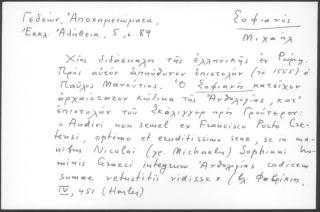 Γεδεών, Ἀποσημειώματα,
Ἐκκλ. Ἀλήθεια, 5, σ. 89
Σοφιανός
Μιχαήλ
Χῖος διδάσκαλος τῆς ἑλληνικῆς ἐν Ρώμῃ.
Πρὸς αὐτὸν ἀπηύθυνεν ἐπιστολὴν (τὸ 1555) ὁ
Παῦλος Μανούτιος. Ὁ Σοφιανὸς κατεῖχεν
ἀρχαιότατον κώδικα τῆς Ἀνθολογίας, κατ'
ἐπιστολὴν τοῦ Σκαλίγγερ πρὸς Γρούτερον:
«Audivi non semel ex Francisco Porto Cre-
tensi, optimo et eruditissimo sene, se in ma-
nibus Nicolai (γρ. Michaelis) Sophiani ho-
minis Graeci integrum Ἀνθολογίας codicem
summae vetustitii vidisse» (βλ. Φαβρίκιον,
IV, 451 (Harles)